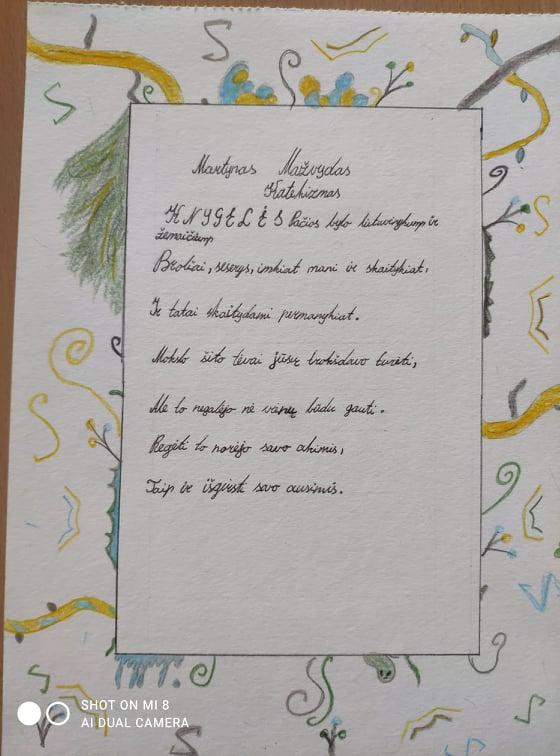 Martynas Mažvydas
Katekizmas
KNYGELĖS Pačios bylo lietuvinykump ir
žemaičiump
Broliai, seserys, imkiat mani ir skaitykiat,
Ir tatai skaitydami permanykiat.
Mokslo šito tėvai jūsų trokšdavo turėti,
Ale to negalėjo nė vienu būdu gauti.
Regėti to norėjo savo akimis,
Taip ir išgirsti savo ausimis.
SHOT ON MI 8
AI DUAL CAMERA